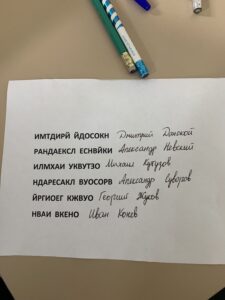 ИМТДИРЙ ЙДОСОКН Дмитрий Донской
РАНДАЕКСЛ ЕСНВЙКИ Александр Невский
ИЛМХАИ УКВУТЗО Михаил Кутузов
НДАРЕСАКЛ ВУОСОРВ Александр Суворов
ЙРГИОЕГ КЖВУО Георгий Жуков
НВАИ ВКЕНО Иван Конев